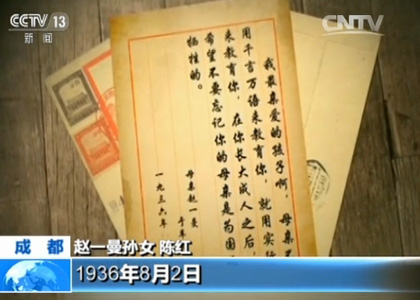 CCTV 13
新闻
CNTV
我最亲爱的孩子啊，母亲
用千言万语来教育你，就用实
来教育你，在你长大成人之后，
希望不要忘记你的母亲是为国
牺牲的。
母亲赵一曼于车
一九三六年
成都 赵一曼孙女 陈红
1936年8月2日